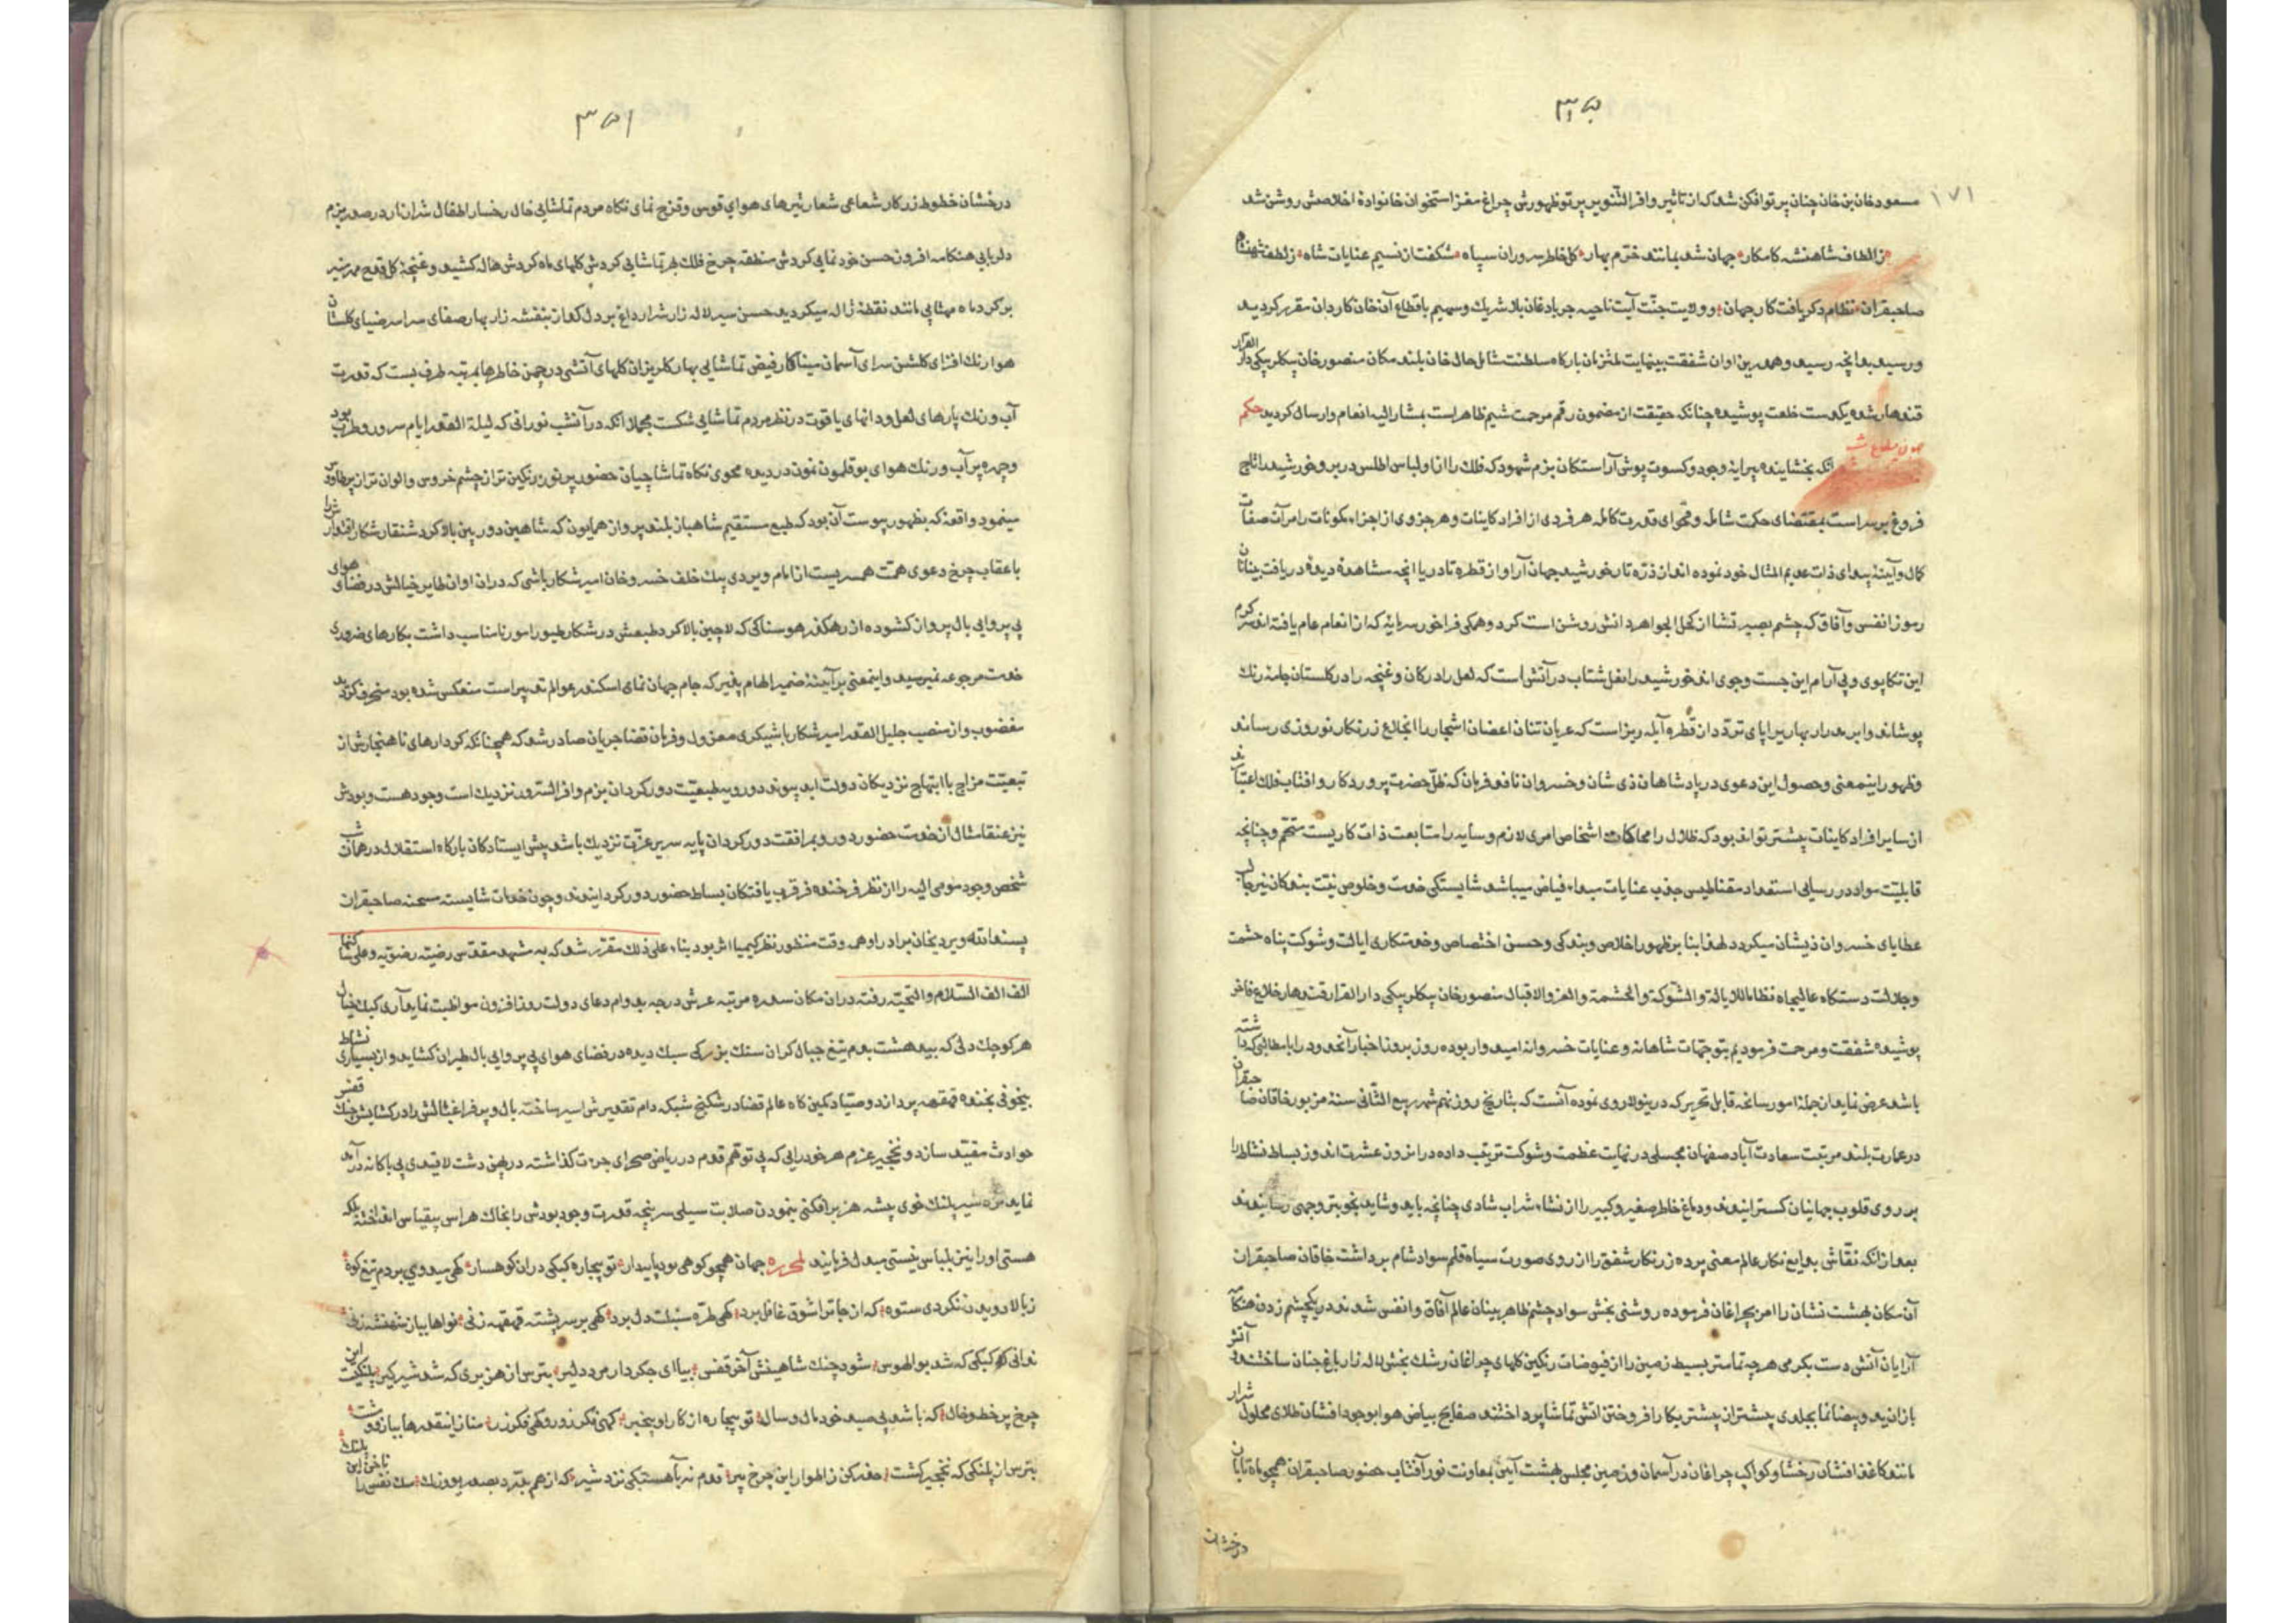 ۱۷۱
مسعود خان بن خان چنان پرتو افکن شد که از تاثیر وافر التنویر پرتو ظهورش چراغ مغز استخوان خانوادهٔ اخلاصش روشن شد
ز الطاف شاهنشه کامکار جهان شد بمانند خرّم بهار گل خاطر سروران سپاه شکفت از نسیم عنایات شاه ز لطف شهنشاه
صاحبقران نظام دکر یافت کار جهان و ولایت جنّت آیت ناحیه جربادغان بلا شریك و سهیم باقطاع آن خان کاردان مقرر کردید
و رسید بدانچه رسید و همدرین اوان شفقت بینهایت ملتزمان بارکاه سلطنت شامل حال خان بلند مکان منصور خان بیکلربیکی دار القرار
قندهار شده یکدست خلعت پوشیده چنانکه حقیقت از مضمون رقم مرحمت شیم ظاهر است بمشار الیه انعام و ارسال کردید حکم
آنکه بخشاینده پیرایهٔ وجود و کسوت پوش آراستکان بزم شهود که فلك را از او لباس اطلس در بر و خورشید را تاج
فروغ بر سر است بمقتضای حکمت شامله و فحوای قدرت کامله هر فردی از افراد کاینات و هر جزوی از اجزاء مکونات را مرآت صفات
کمال و آیینهٔ پیدای ذات عدیم المثال خود نموده اند از ذرّه تا خورشید جهان آرا و از قطره تا دریا آنچه مشاهدهٔ دیدهٔ دریافت بینایان
رموز انفس و آفاق که چشم بصیرتشان از کحل الجواهر دانش روشن است کرد و همکی فراخور سرمایهٔ که از انعام عام یافته اند سرکرم
این تکاپوی و بی آرام این جست و جوی اند خورشید را نعل شتاب در آتش است که لعل را در کان و غنچه را در کلستان جامهٔ رنك
پوشاند و ابر مدرار بهار را پای تردّد از قطره آبله ریز است که عریان تنان اغصان اشجار را بخلاع زرنکار نوروزی رساند
و ظهور اینمعنی و حصول این دعوی در پادشاهان ذی شان و خسروان نافذ فرمان که ظلّ حضرت پروردکار و آفتاب فلك اعتبارند
از سایر افراد کاینات بیشتر تواند بود که ظلال را محاکات اشخاص امری لازم و سایه را متابعت ذات کاریست متحتّم و چنانچه
قابلیّت مواد در رسایی استعداد مقناطیس جذب عنایات مبداء فیاض میباشد شایستکی خدمت و خلوص نیّت بندکان نیز جالب
عطایای خسروان ذیشان میکردد لهذا بنا بر ظهور اخلاص و بندکی و حسن اختصاص و خدمتکاری ایالت و شوکت پناه حشمت
و جلالت دستکاه عالیجاه نظاما للایالة و الشوکة و الحشمة و العز و الاقبال منصور خان بیکلربیکی دار القرار قندهار خلاع فاخر
پوشیده شفقت و مرحمت فرمودیم بتوجهات شاهانه و عنایات خسروانه امیدوار بوده روز بروز اخبار آنحدود را با مطالبی که داشته
باشد عرض نماید از جملهٔ امور سانحه قابل تحریر که درینولا روی نموده آنست که بتاریخ روز نهم شهر ربیع الثانی سنهٔ مزبور خاقان صاحبقران
در عمارت بلند مرتبت سعادت آباد صفهان مجلسی در نهایت عظمت و شوکت ترتیب داده در انروز عشرت اندوز بساط نشاط را
بر روی قلوب جهانیان کسترانیدند و دماغ خاطر صغیر و کبیر را از نشاء شراب شادی چنانچه باید و شاید بنحو بترین وجهی رسانیدند
بعد از آنکه نقّاش بدایع نکار عالم معنی پرده زرنکار شفق را از روی صورت سیاه قلم سواد شام برداشت خاقان صاحبقران
آن مکان بهشت نشان را امر بچراغان فرموده روشنی بخش سواد چشم ظاهر بینان عالم آفاق و انفس شدند در یکچشم زدن هنکامه
آرایان آتش دست بکرمی هر چه تمامتر بسیط زمین را از فیوضات رنکین کلهای چراغان رشك بخش لاله زار باغ جنان ساختند و آتش
بازان ید و بیضا نما بجلدی بیشتر از پیشتر بکار افروختن آتش تماشا پرداختند صفایح بیاض هوا بوجود افشان طلای محلول شرار
مانند کاغذ افشان رخشا و کواکب چراغان در آسمان و زمین مجلس بهشت آیین بمعاونت نور آفتاب حضور صاحبقران همچو ماه تابان
درخشان
درخشان خطوط زرکار شعاعی شعار تیرهای هوای قوس و قزح نمای نکاه مردم تماشایی خال رخسار اطفال شراران در صدر بزم
دلربایی هنکامه افروز حسن خود نمایی کردش منطقه چرخ فلك بر تماشایی کردش کلهای ماه کردش هاله کشید و غنچهٔ کل قدح
بر کرد ماه مهتابی مانند نقطهٔ ژاله میکردید حسن سیر لاله زار شرار داغ بر دل کداز بنفشه زار بهار صفای سراسر ضیای کلستان
هوا رنك افزای کلشن سرای آسمان مینا کار فیض تماشایی بهار کلریزان کلهای آتشی در چمن خاطرها بمرتبه طرف بست که قدرت
آب و رنك پارهای لعل و دانهای یاقوت در نظر مردم تماشایی شکست مجملا آنکه در آنشب نورانی که لیلة القدر ایام سرور و طرب بود
و چهره پر آب و رنك هوای بوقلمون نمون در دیده محوی نکاه تماشاچیان حضور پر نور رنکین تر از چشم خروس و الوان تر از پر طاوس
مینمود واقعهٔ که بظهور پیوست آن بود که طبع مستقیم شاهباز بلند پرواز همایون که شاهین دوربین بالا کرد شنقار شکار اقتدارش را
با عقاب چرخ دعوی همّت همسریست از امام ویردی بیك خلف خسرو خان امیر شکار باشی که در ان اوان طایر خیالش در فضای هوای
بی پروایی بال پرواز کشوده از رهکذر هوسناکی که لاچین بالا کرد طبعش در شکار طیور امور نامناسب داشت بکارهای ضروری
خدمت مرجوعه نمیرسید و اینمعنی بر آیینهٔ ضمیر الهام پذیر که جام جهان نمای اسکندر عوالم تدبیر است منعکس شده بود منحرف کردید
مغضوب و از منصب جلیل القدر امیر شکار باشیکری معزول و فرمان قضا جریان صادر شد که همچنانکه کردارهای ناهنجارش از
تبعیّت مزاج با ابتهاج نزدیکان دولت ابد پیوند دور و بطبعیّت دور کردان بزم وافر السّرور نزدیك است وجود هست و بودش
نیز عنقا مثال از خدمت حضور دور و بمرافقت دور کردان پایه سریر عزّت نزدیك باشد پیش ایستادکان بارکاه استقلال در همان شب
شخص وجود مومی الیه را از نظر فرخنده فر قرب یافتکان بساط حضور دور کردانیدند و چون خدمات شایسته صاحبقران
الف الف السّلام و التحیّة رفته در ان مکان سدره مرتبه عرش درجه بدوام دعای دولت روز افزون مواظبت نماید آری کبك خیال
هر کوچك دلی که بیدهشت بدم تیغ جبال کران سنك بزرکی سبك دیده در فضای هوای بی پروایی بال طیران کشاید و از بسیاری نشاط
بیخوفی بخنده قهقهه پردازد و صیّاد کمین کاه عالم قضا در شکنج شبکه دام تقدیرش اسیر ساخته بال و پر فراغبالش را در کشایش چنك قفس
حوادث مقیّد سازد و نخجیر عزم هر خود رایی که بی توهّم قدم در ریاض صحرای جرءت کذاشته در پهن دشت لاقیدی بی باکانه در آمد
هستی او را نیز بلباس نیستی مبدل فرمایند لمحرره جهان همچو کوهی بود پایدار تو بیچاره کبکی در ان کوهسار کهی میدوی بر دم تیغ کوه
ز بالا دویدن نکردی ستوه که از جا ترا شوق غافل برد کهی طرّه سنبلت دل برد کهی بر سر پشته قهقهه زنی
ندانی که کبکی که شد بوالهوس شود چنك شاهینش آخر قفس بیا ای جکردار مرد دلیر بترس از هژبری که شد شیر کیر
چرخ پر خط و خال که باشد پی صید خود مال و سال تو بیچاره از کار او بیخبر کهی فکر زور و کهی فکر زر
بترس از پلنکی که نخجیر کشت حذر کن ز اطوار این چرخ پیر قدم نه بآهستکی نزد شیر که از هم بدرّد بصد یوز رنك سك نفس را ناخن این پلنك